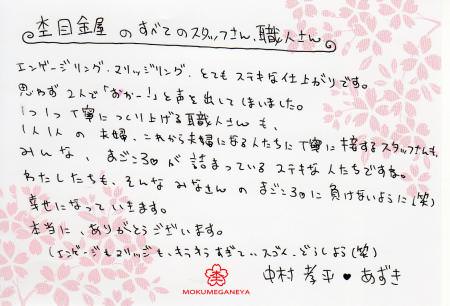 杢目金屋 のすべてのスタッフさん、職人さん
エンゲージリング・マリッジリング・とてもステキな仕上がりです。
思わず2人で「おぉー!」と声を出してしまいました。
1つ1つ丁寧につくり上げる職人さんも、
1人1人の夫婦、これから夫婦になる人たちに丁寧に接するスタッフさんも、
みんな、まごころ♡が詰まっているステキな人たちですね。
わたしたちも、そんなみなさんのまごころ♡に負けないように(笑)
幸せになっていきます。
本当に、ありがとうございます。
(エンゲージもマリッジも、キラキラすぎて、、スゴイ、どうしよう(笑)
中村 孝平 ♥ あずき
MOKUMEGANEYA